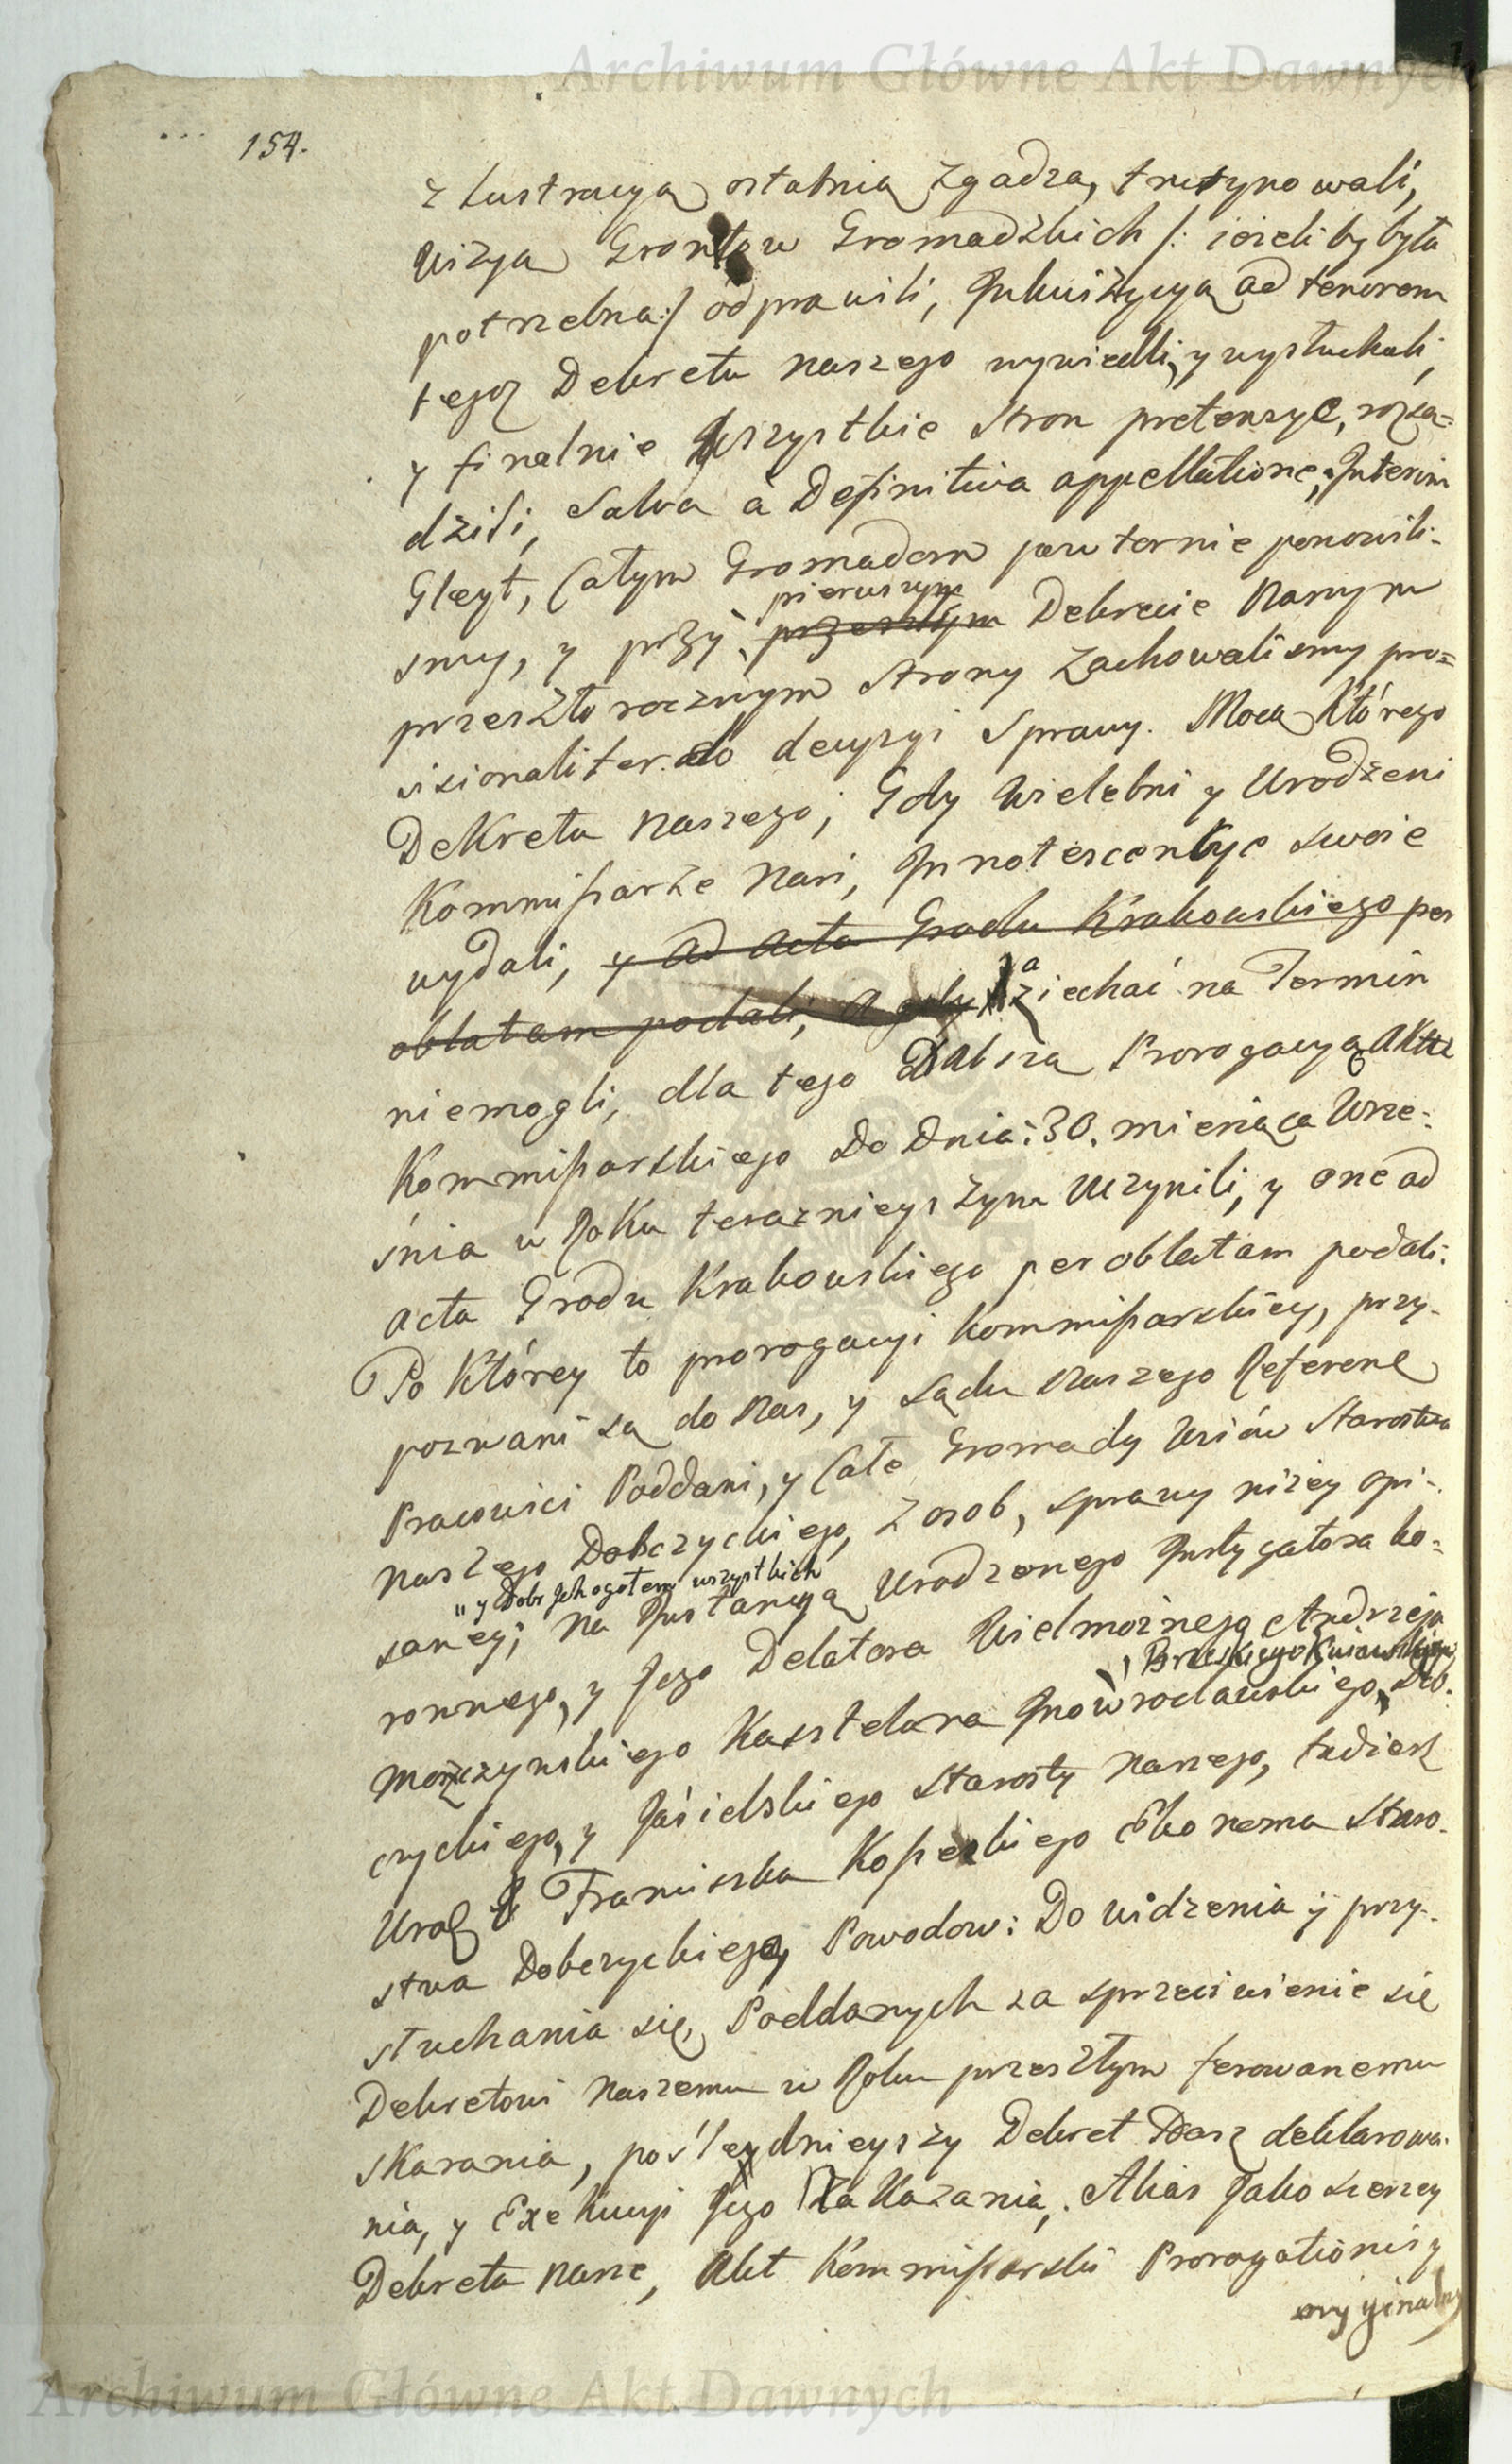 Archiwum Główne Akt Dawnych
154.
z Lustracyą ostatnią zgadza, trutynowali,
Wizyą Grontow Gromadzkich /: ieżeliby była
potrzebna :/ odprawili, Inkwizycyą ad tenorem
tegoż Dekretu Naszego wywiedli, y wysłuchali,
y finalnie wszystkie Stron pretensye, rozsą=
dzili, Salva a Definitiva appellatione, Interim
Gleyt, Całym Gromadom powtornie ponowili-
smy, y przy pierwszym przeszłym Dekrecie Naszym
przeszłorocznym Strony Zachowalismy pro=
visionaliter do decyzyi Sprawy. Mocą Którego
DeKretu Naszego, Gdy Wielebni y Urodzeni
Kommissarze Nasi, Innotescencye swoie
wydali, y ad Acta Grodu Krakowskiego per
oblatam podali, A gdy a ziechać na Termin
niemogli, dla tego Dalszą Prorogacyą Aktu
Kommissarskiego Do Dnia: 30. miesiąca Wrze-
śnia w RoKu teraznieyszym Uczynili, y one ad
Acta Grodu Krakowskiego per oblatam podali.
Po Którey to prorogacyi Kommissarskiey, przy-
pozwani są do Nas, y Sądu Naszego Referen:
Pracowici Poddani, y Całe Gromady Wsiów Starostwa
Naszego Dobczyckiego, z osob, sprawy niżey opi-
" y Dobr Ich ogołem wszystkich
saney; Na Instancyą Urodzonego Instygatora ko=
ronnego, y Jego Delatora Wielmożnego Andrzeja
, Brzeskiego Kuiawskiego
Moszczynskiego Kasztelana Inowrocławskiego, Dob-
czyckiego, y Jasielskiego Starosty Naszego, tudzież
Urodz Franciszka Kosseckiego Ekonoma Staro-
stwa Dobczyckiego, Powodow: Do widzenia y przy-
słuchania się, Poddanych za sprzeciwienie się
Dekretowi Naszemu w Roku przeszłym ferowanemu
sKarania, poślednieyszy Dekret Nasz deklarowa-
nia, y ExeKucyi Jego NaKazania, Alias Jako szerzey
Dekreta Nasze, Akt Kommissarski Prorogationis y
oryginalny
Archiwum Główne Akt Dawnych